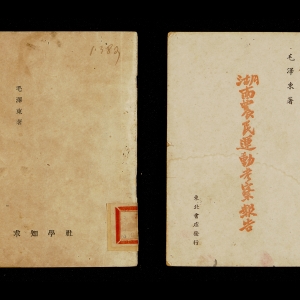 1389
毛澤東著
求知學社
毛澤東著
湖南農民運動考察報告
東北書店發行